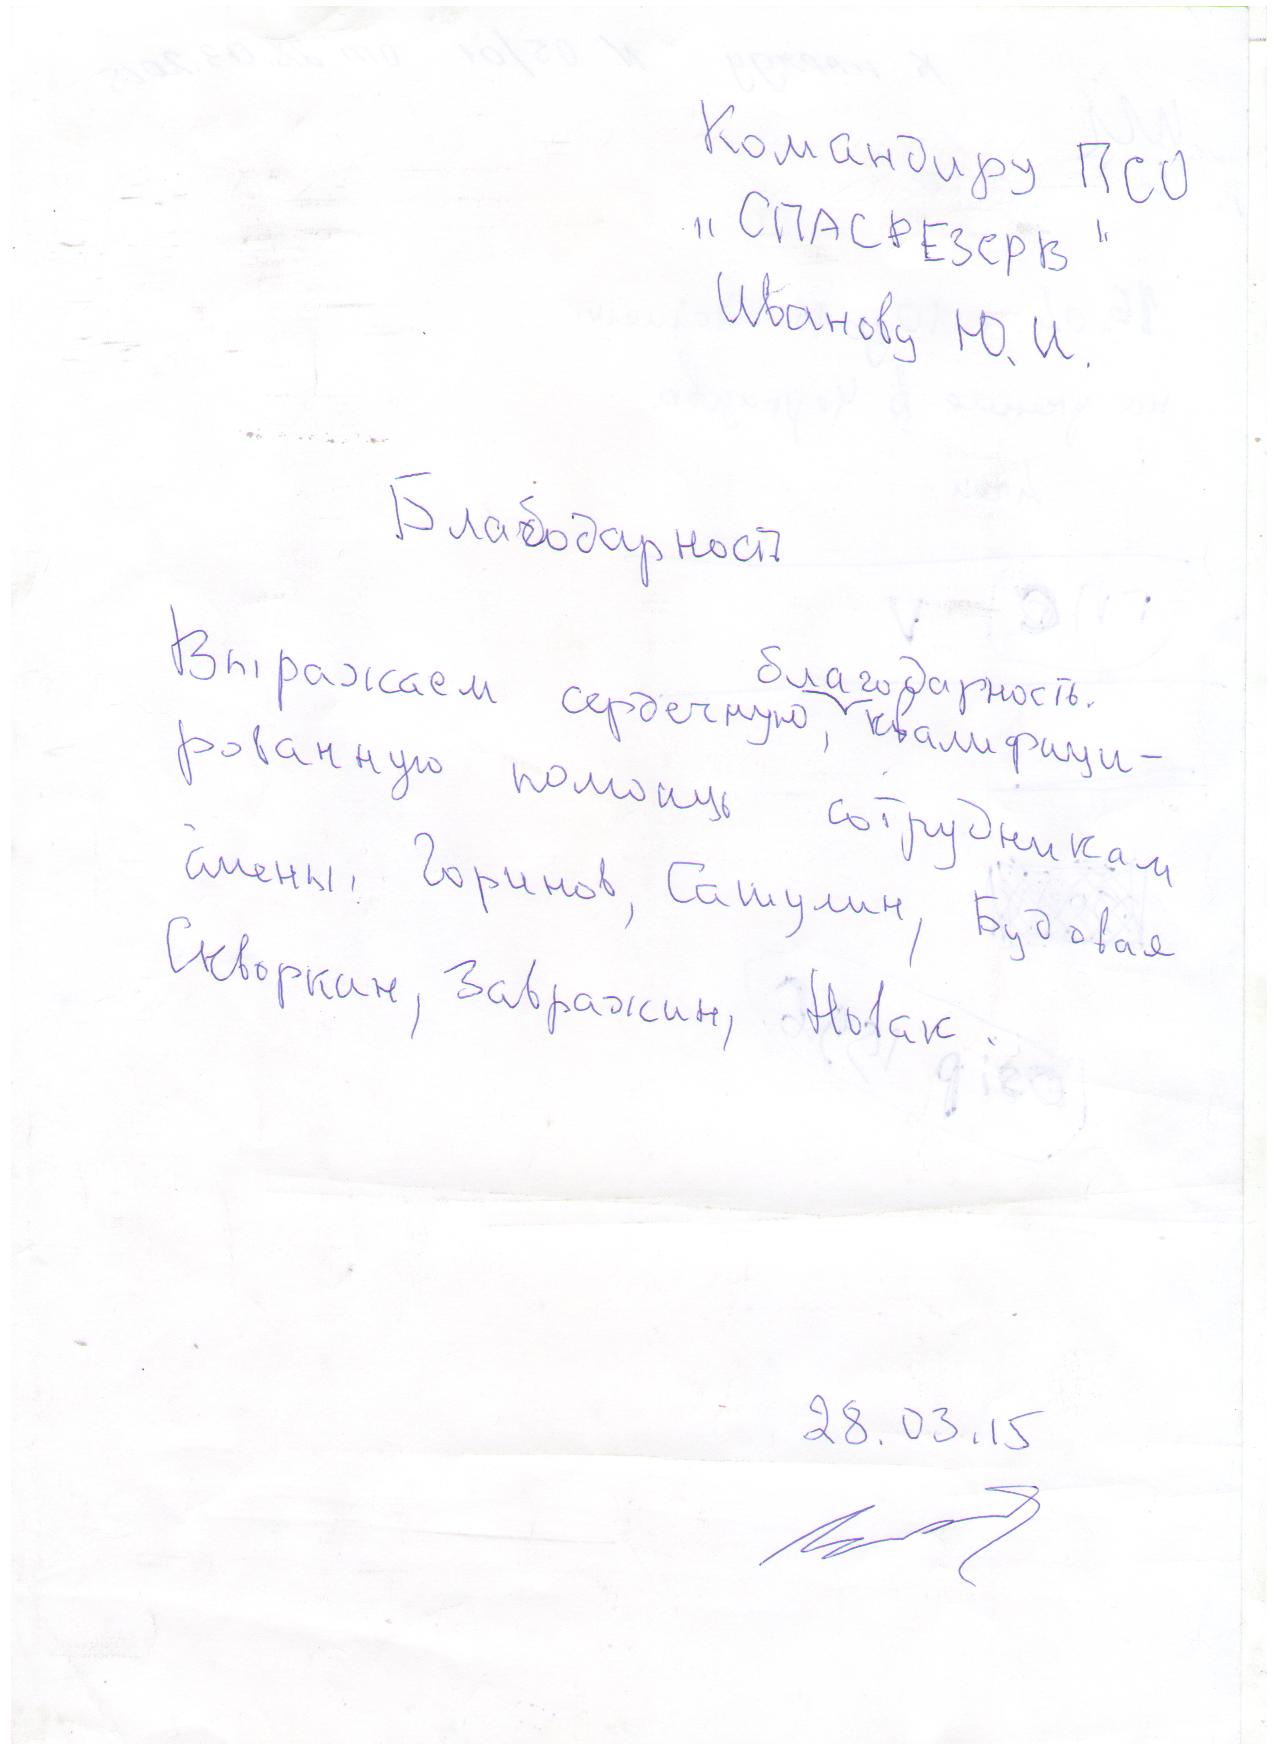 Командиру ПСО
„СПАСРЕЗЕРВ"
Иванову Ю.И.
Благодарность
Выражаем сердечную, благодарность. квалифици-
рованную помощь сотрудникам
смены: Горинов, Сатулин, Будовая
Скворкин, Завражин, Новак.
28.03.15